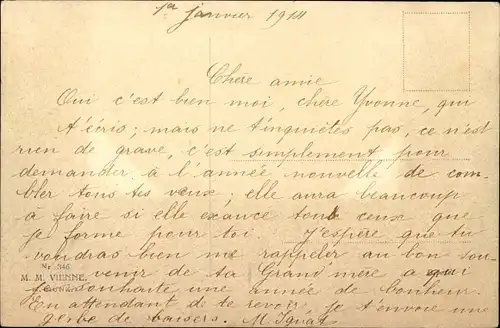 1er janvier 1914
Chère amie
Oui c'est bien moi, chère Yvonne, qui
t'écris; mais ne t'inquiètes pas, ce n'est
rien de grave, c'est simplement pour
demander à l'année nouvelle de com-
bler tous tes veux; elle aura beaucoup
à faire si elle exance tous ceux que
je forme pour toi. J'espère que tu
voudras bien me rappeler au bon sou-
venir de ta Grand'mère à qui
je souhaite une année de bonheur.
En attendant d te revoir, je t'envoie une
gerbe de baisers. M. Ignat
Nr. 346
M. M. VIENNE.